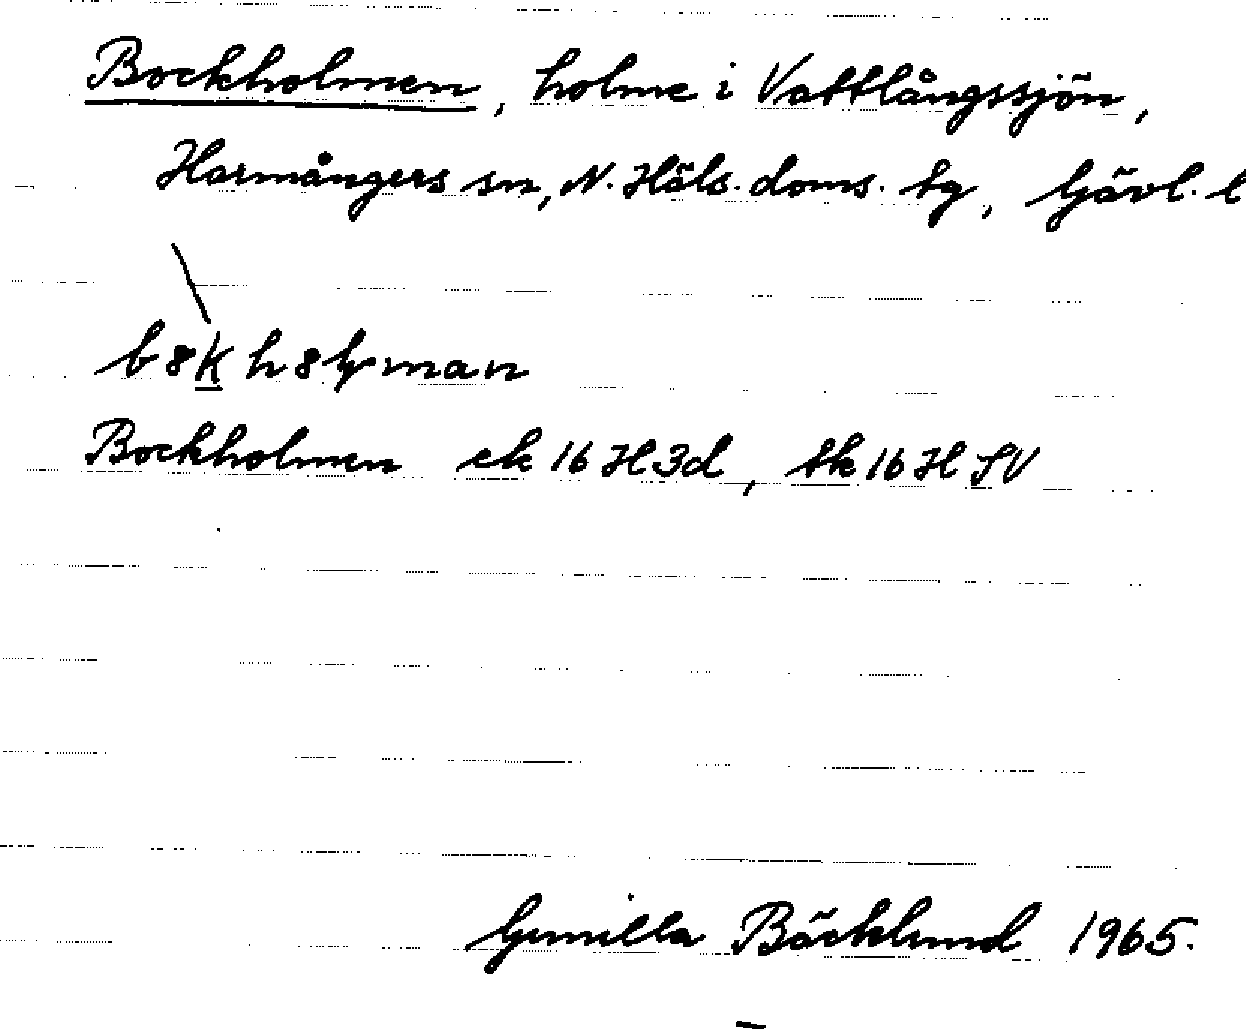 Bockholmen, holme i Vattlångssjön,
Harmångers sn, N. Häls. doms. tg, Gävl. l
Bockholmen ek 16 H 3d, tk 16 H SV
Gunilla Bäcklund 1965.